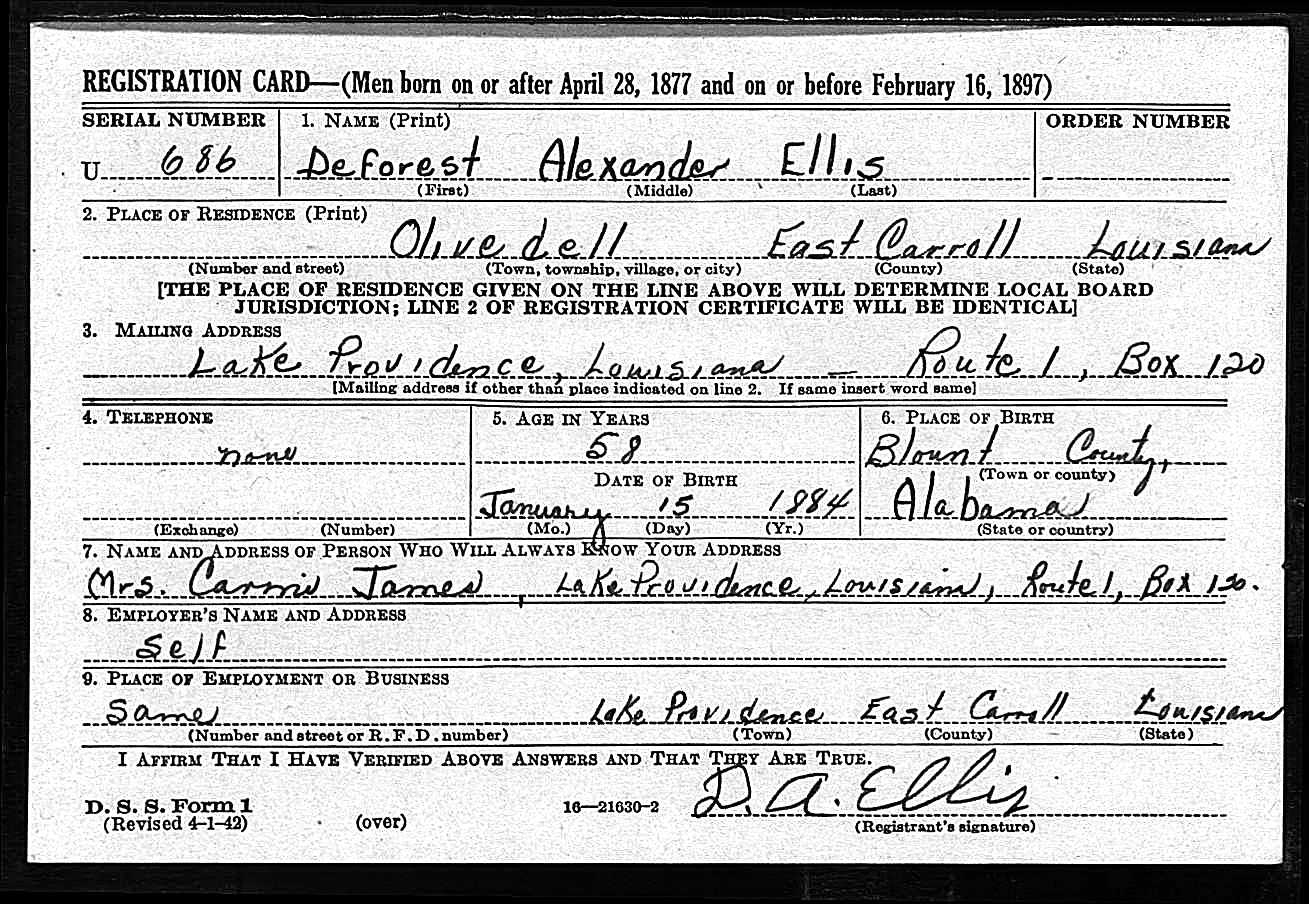 REGISTRATION CARD—(Men born on or after April 28, 1877 and on or before February 16, 1897)
SERIAL NUMBER 1. NAME (Print) ORDER NUMBER
U 686 Deforest Alexander Ellis
(First) (Middle) (Last)
2. PLACE OF RESIDENCE (Print)
Olivedell East Carroll Louisiana
(Number and street) (Town, township, village, or city) (County) (State)
[THE PLACE OF RESIDENCE GIVEN ON THE LINE ABOVE WILL DETERMINE LOCAL BOARD
JURISDICTION; LINE 2 OF REGISTRATION CERTIFICATE WILL BE IDENTICAL]
3. MAILING ADDRESS
Lake Providence, Louisiana — Route 1, Box 120
[Mailing address if other than place indicated on line 2. If same insert word same]
4. TELEPHONE 5. AGE IN YEARS 6. PLACE OF BIRTH
none 58 Blount County,
DATE OF BIRTH (Town or county)
January 15 1884 Alabama
(Exchange) (Number) (Mo.) (Day) (Yr.) (State or country)
7. NAME AND ADDRESS OF PERSON WHO WILL ALWAYS KNOW YOUR ADDRESS
Mrs. Carmi James, Lake Providence, Louisiana, Route 1, Box 120.
8. EMPLOYER'S NAME AND ADDRESS
Self
9. PLACE OF EMPLOYMENT OR BUSINESS
Same Lake Providence East Carroll Louisiana
(Number and street or R. F. D. number) (Town) (County) (State)
I AFFIRM THAT I HAVE VERIFIED ABOVE ANSWERS AND THAT THEY ARE TRUE.
D. S. S. Form 1 16—21630-2 D. A. Ellis
(Revised 4-1-42) (over) (Registrant's signature)